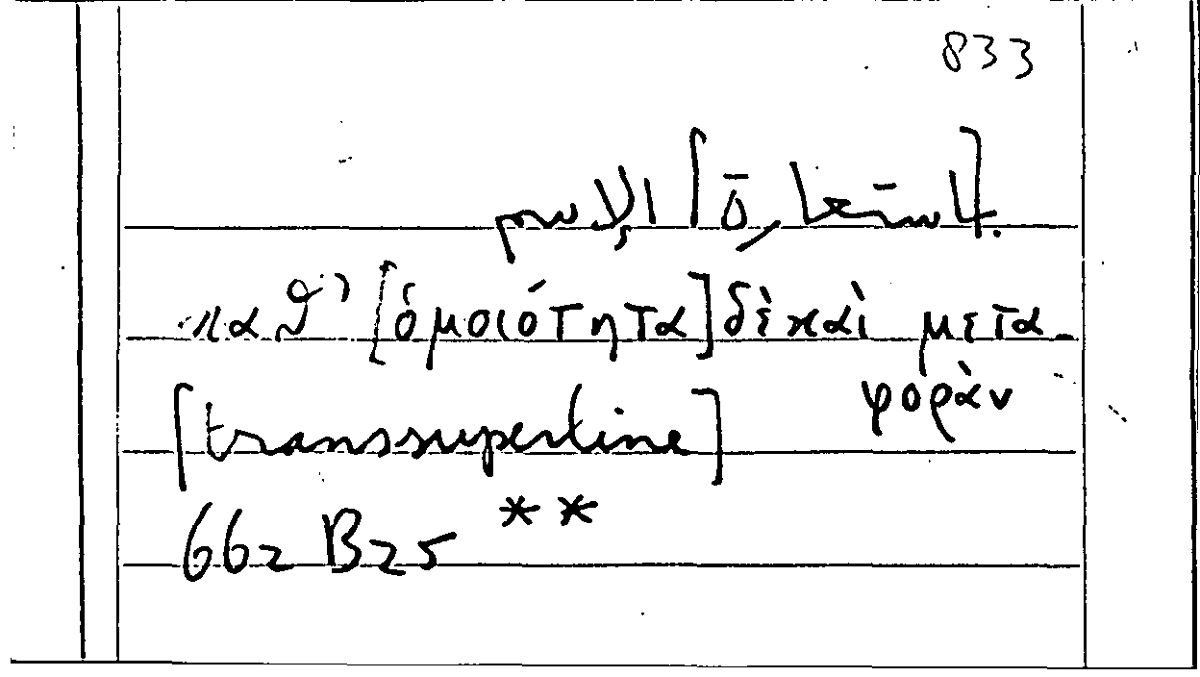 833
[استعارة] الإسم
καθ' [ὁμοιότητα] δὲ καὶ μετα-
φορὰν
[transsuperline]
662 B25 **